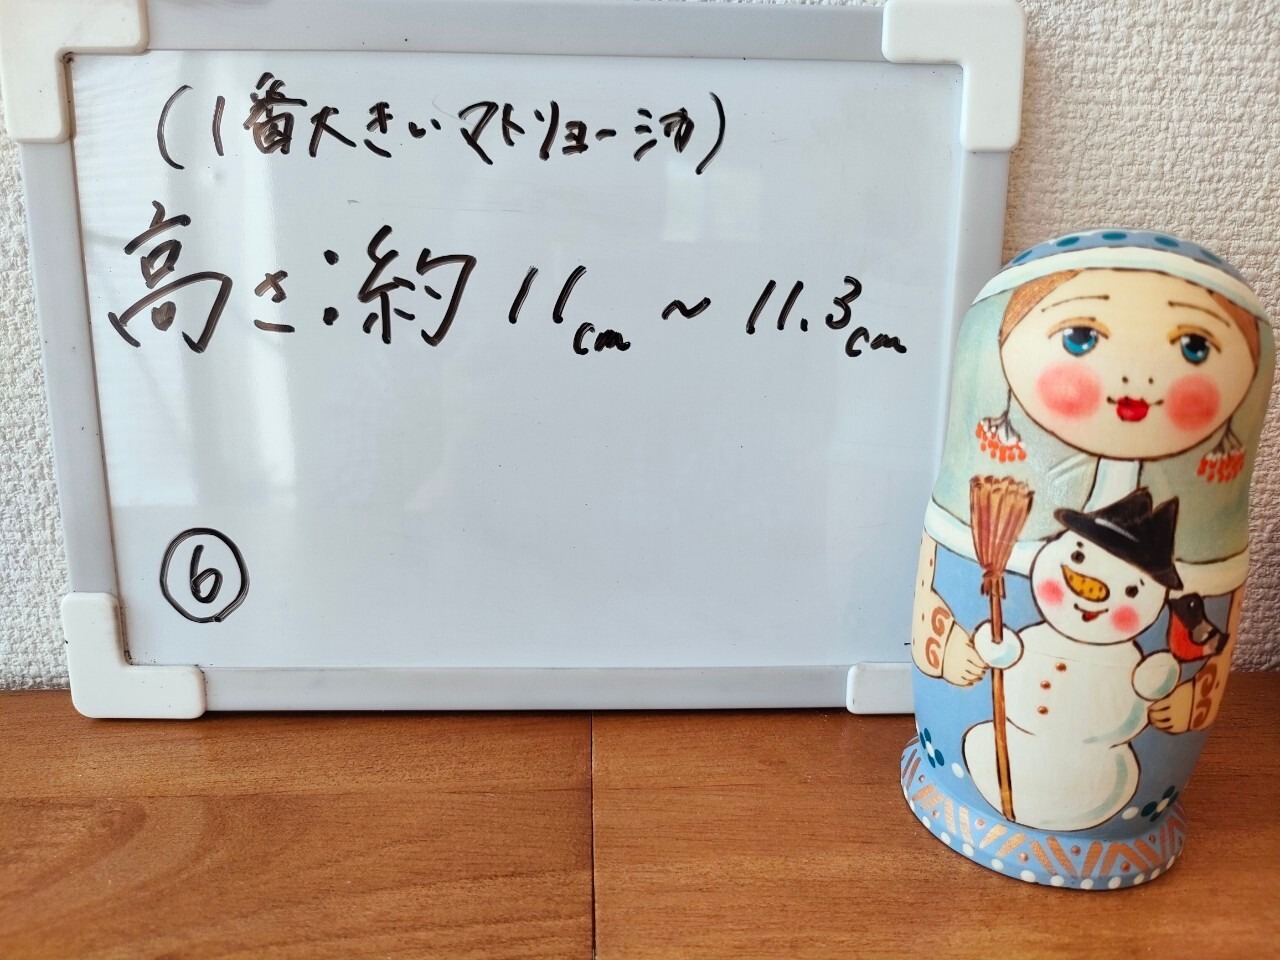 (1番大きいマトリョーシカ)
高さ:約11cm~11.3cm
⑥